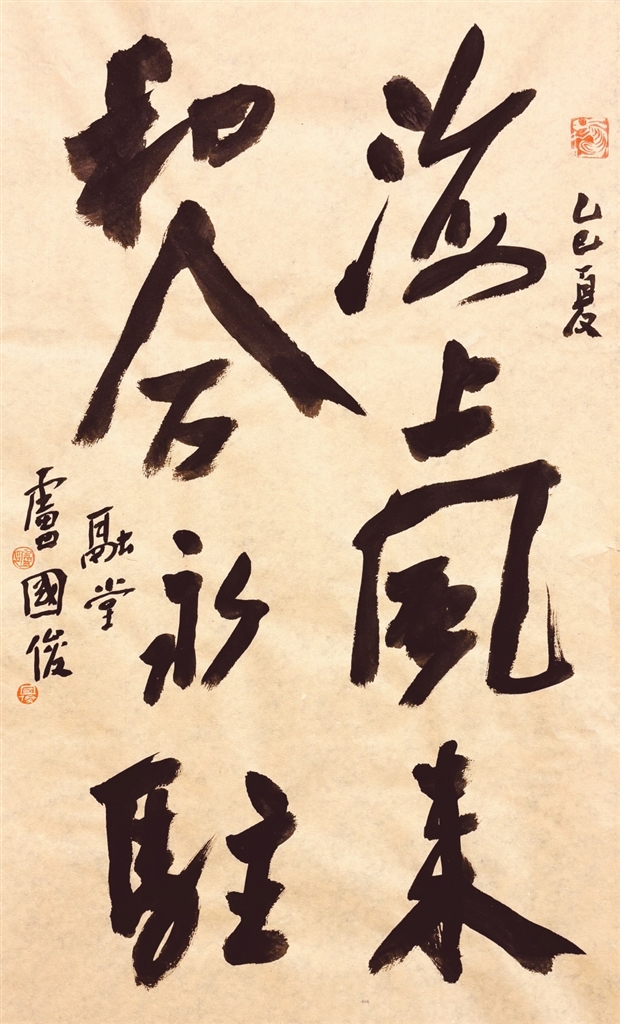 乙巳夏
海上風来
和合永駐
融堂
盧國俊